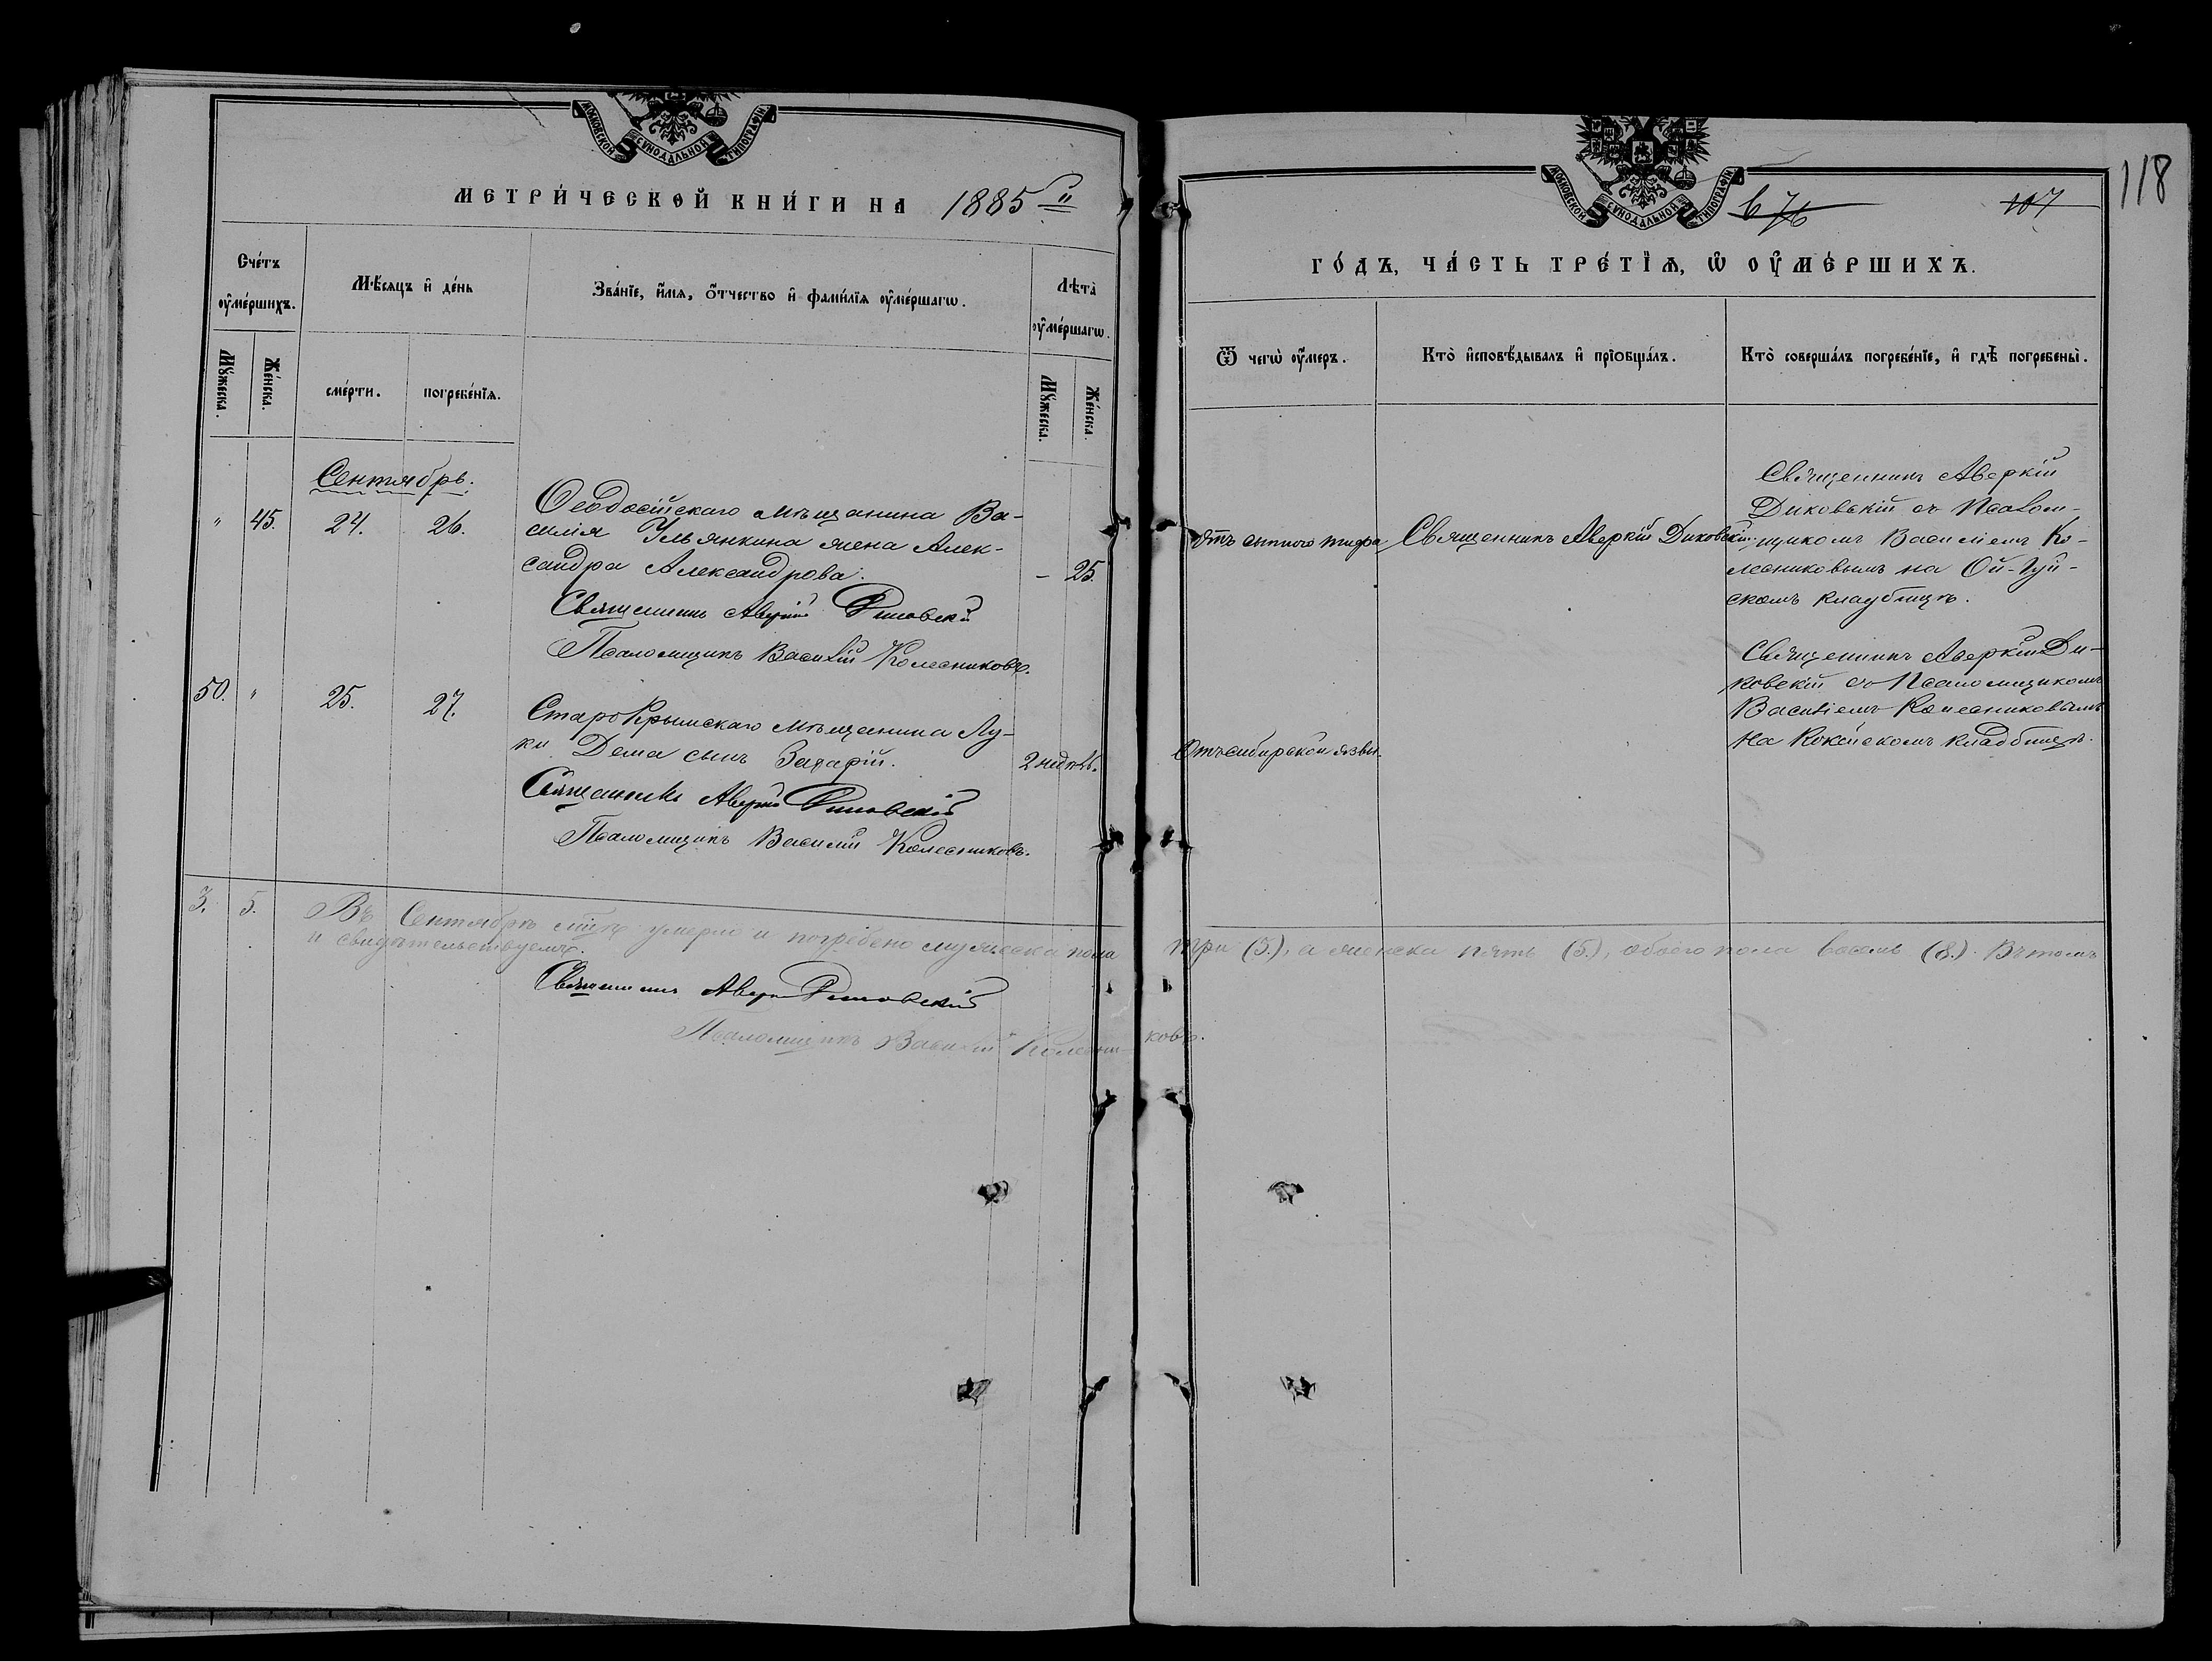 МОСКОВСКОЙ СѴНОДАЛЬНОЙ ТИПОГРАФІИ
МЕТРИ́ЧЕСКОЙ КНИ́ГИ НА 1885 й
Сче́тъ оу҆ме́ршихъ.
Мѣ́сяцъ и҆ де́нь
Зва́нїе, и҆́мѧ, ѻ҆́тчество и҆ фами́лїѧ оу҆ме́ршагѡ.
Лѣ́та оу҆ме́ршагѡ.
Мꙋ́жеска.
Же́нска.
сме́рти.
погребе́нїѧ.
Мꙋ́жеска.
Же́нска.
Сентябрь.
" 45. 24. 26.
Ѳеодосійскаго мѣщанина Ва-
силія Ульянкина жена Алек-
сандра Александрова.
– 25.
Священникъ Аверкій Диковскій
Псаломщикъ Василій Колесниковъ.
50. " 25. 27.
СтароКрымскаго мѣщанина Лу-
ки Дема сынъ Захарій.
2 недѣль.
Священникъ Аверкій Диковскій
Псаломщикъ Василій Колесниковъ.
3. 5. Въ Сентябрѣ мцѣ умерло и погребено мужеска пола
и свидѣтельствуемъ.
Священникъ Аверкій Диковскій
Псаломщикъ Василій Колесни-
МОСКОВСКОЙ СѴНОДАЛЬНОЙ ТИПОГРАФІИ
118
107
ГО́ДЪ, ЧА́СТЬ ТРЕ́ТЇѦ, Ѡ҆ ОУ҆МЕ́РШИХЪ.
Ѿ чегѡ̀ оу҆́меръ.
Кто̀ и҆сповѣ́дывалъ и҆ прїѻбща́лъ.
Кто̀ соверша́лъ погребе́нїе, и҆ гдѣ̀ погребены̀.
Отъ сыпного тифа
Священникъ Аверкій Диковскій.
Священникъ Аверкій
Диковскій съ Псалом-
щикомъ Василіемъ Ко-
лесниковымъ на Ой-Гуй-
скомъ кладбищѣ.
Отъ сибирской язвы.
Священникъ Аверкій Ди-
ковскій съ Псаломщикомъ
Василіемъ Колесниковымъ
на Коккозскомъ кладбищѣ.
три (3.), а женска пять (5.), обоего пола восемь (8.). Въ томъ
ковъ.